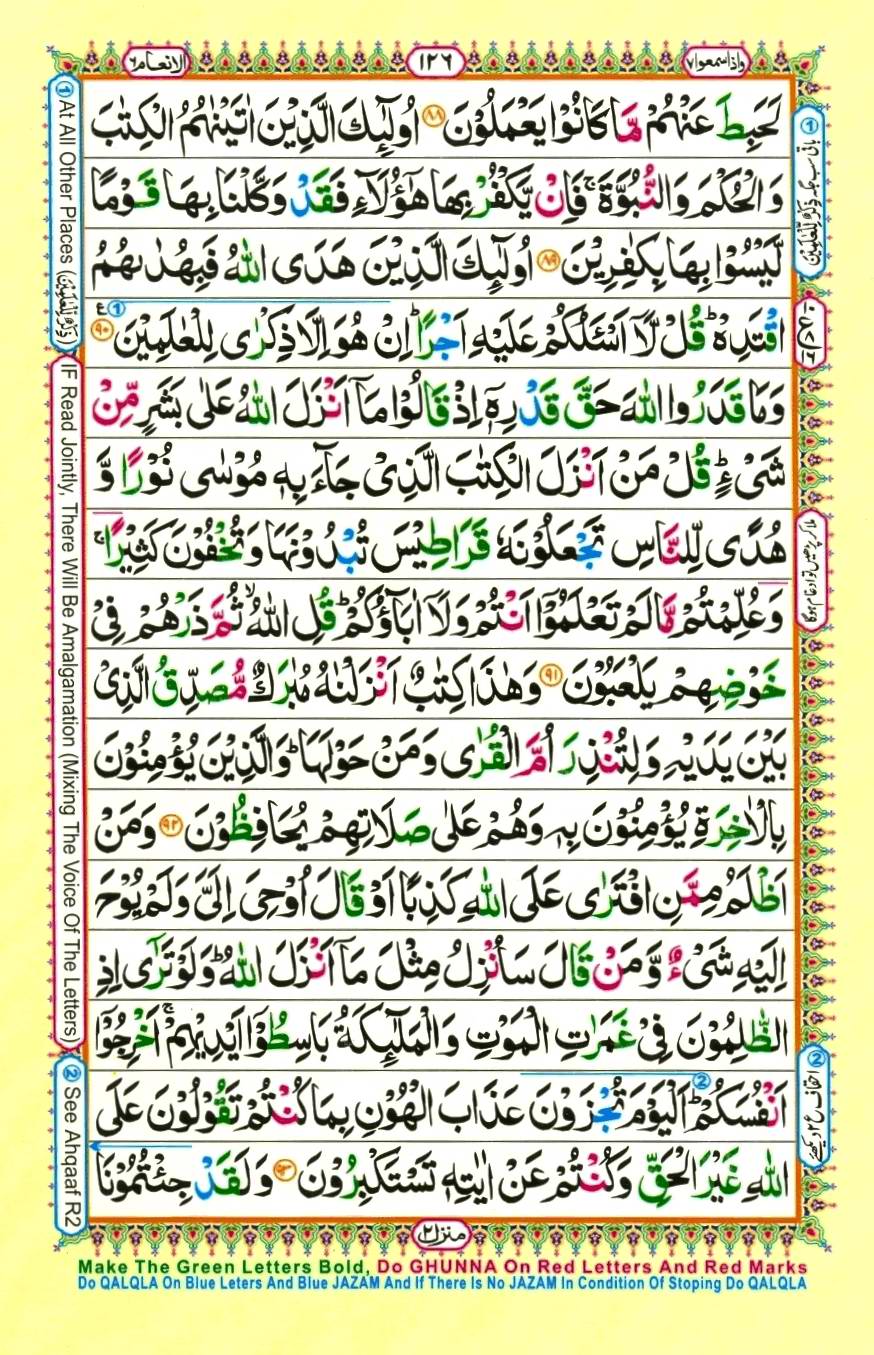 الانعام ٦
١٢٦
واذا سمعوا ٧
لَحَبِطَ عَنْهُمْ مَّا كَانُوْا يَعْمَلُوْنَ ﴿٨٨﴾ اُولٰٓئِكَ الَّذِيْنَ اٰتَيْنٰهُمُ الْكِتٰبَ
وَالْحُكْمَ وَالنُّبُوَّةَ ۚ فَاِنْ يَّكْفُرْ بِهَا هٰٓؤُلَآءِ فَقَدْ وَكَّلْنَا بِهَا قَوْمًا
لَّيْسُوْا بِهَا بِكٰفِرِيْنَ ﴿٨٩﴾ اُولٰٓئِكَ الَّذِيْنَ هَدَى اللّٰهُ فَبِهُدٰىهُمُ
اقْتَدِهْ ؕ قُلْ لَّآ اَسْـَٔلُكُمْ عَلَيْهِ اَجْرًا ؕ اِنْ هُوَ اِلَّا ذِكْرٰى لِلْعٰلَمِيْنَ ﴿٩٠﴾ ع 1
وَمَا قَدَرُوا اللّٰهَ حَقَّ قَدْرِهٖٓ اِذْ قَالُوْا مَآ اَنْزَلَ اللّٰهُ عَلٰى بَشَرٍ مِّنْ
شَىْءٍ ؕ قُلْ مَنْ اَنْزَلَ الْكِتٰبَ الَّذِىْ جَآءَ بِهٖ مُوْسٰى نُوْرًا وَّ
هُدًى لِّلنَّاسِ تَجْعَلُوْنَهٗ قَرَاطِيْسَ تُبْدُوْنَهَا وَتُخْفُوْنَ كَثِيْرًا ۚ
وَعُلِّمْتُمْ مَّا لَمْ تَعْلَمُوْٓا اَنْتُمْ وَلَآ اٰبَآؤُكُمْ ؕ قُلِ اللّٰهُ ۙ ثُمَّ ذَرْهُمْ فِىْ
خَوْضِهِمْ يَلْعَبُوْنَ ﴿٩١﴾ وَهٰذَا كِتٰبٌ اَنْزَلْنٰهُ مُبٰرَكٌ مُّصَدِّقُ الَّذِىْ
بَيْنَ يَدَيْهِ وَلِتُنْذِرَ اُمَّ الْقُرٰى وَمَنْ حَوْلَهَا ؕ وَالَّذِيْنَ يُؤْمِنُوْنَ
بِالْاٰخِرَةِ يُؤْمِنُوْنَ بِهٖ وَهُمْ عَلٰى صَلَاتِهِمْ يُحَافِظُوْنَ ﴿٩٢﴾ وَمَنْ
اَظْلَمُ مِمَّنِ افْتَرٰى عَلَى اللّٰهِ كَذِبًا اَوْ قَالَ اُوْحِىَ اِلَىَّ وَلَمْ يُوْحَ
اِلَيْهِ شَىْءٌ وَّمَنْ قَالَ سَاُنْزِلُ مِثْلَ مَآ اَنْزَلَ اللّٰهُ ؕ وَلَوْ تَرٰٓى اِذِ
الظّٰلِمُوْنَ فِىْ غَمَرٰتِ الْمَوْتِ وَالْمَلٰٓئِكَةُ بَاسِطُوْٓا اَيْدِيْهِمْ ۚ اَخْرِجُوْٓا
اَنْفُسَكُمْ ؕ اَلْيَوْمَ 2 تُجْزَوْنَ عَذَابَ الْهُوْنِ بِمَا كُنْتُمْ تَقُوْلُوْنَ عَلَى
اللّٰهِ غَيْرَ الْحَقِّ وَكُنْتُمْ عَنْ اٰيٰتِهٖ تَسْتَكْبِرُوْنَ ﴿٩٣﴾ وَلَقَدْ جِئْتُمُوْنَا
منزل ٢
1 At All Other Places (ذِكْرٌ لِّلْعٰلَمِيْنَ)
IF Read Jointly, There Will Be Amalgamation (Mixing The Voice Of The Letters)
2 See Ahqaaf R2
1 باقی سب جگہ ذِكْرٌ لِّلْعٰلَمِيْنَ
ملا کر پڑھیں تو ادغام ہوگا
2 احقاف ع ٢ دیکھئے
Make The Green Letters Bold, Do GHUNNA On Red Letters And Red Marks
Do QALQLA On Blue Leters And Blue JAZAM And If There Is No JAZAM In Condition Of Stoping Do QALQLA